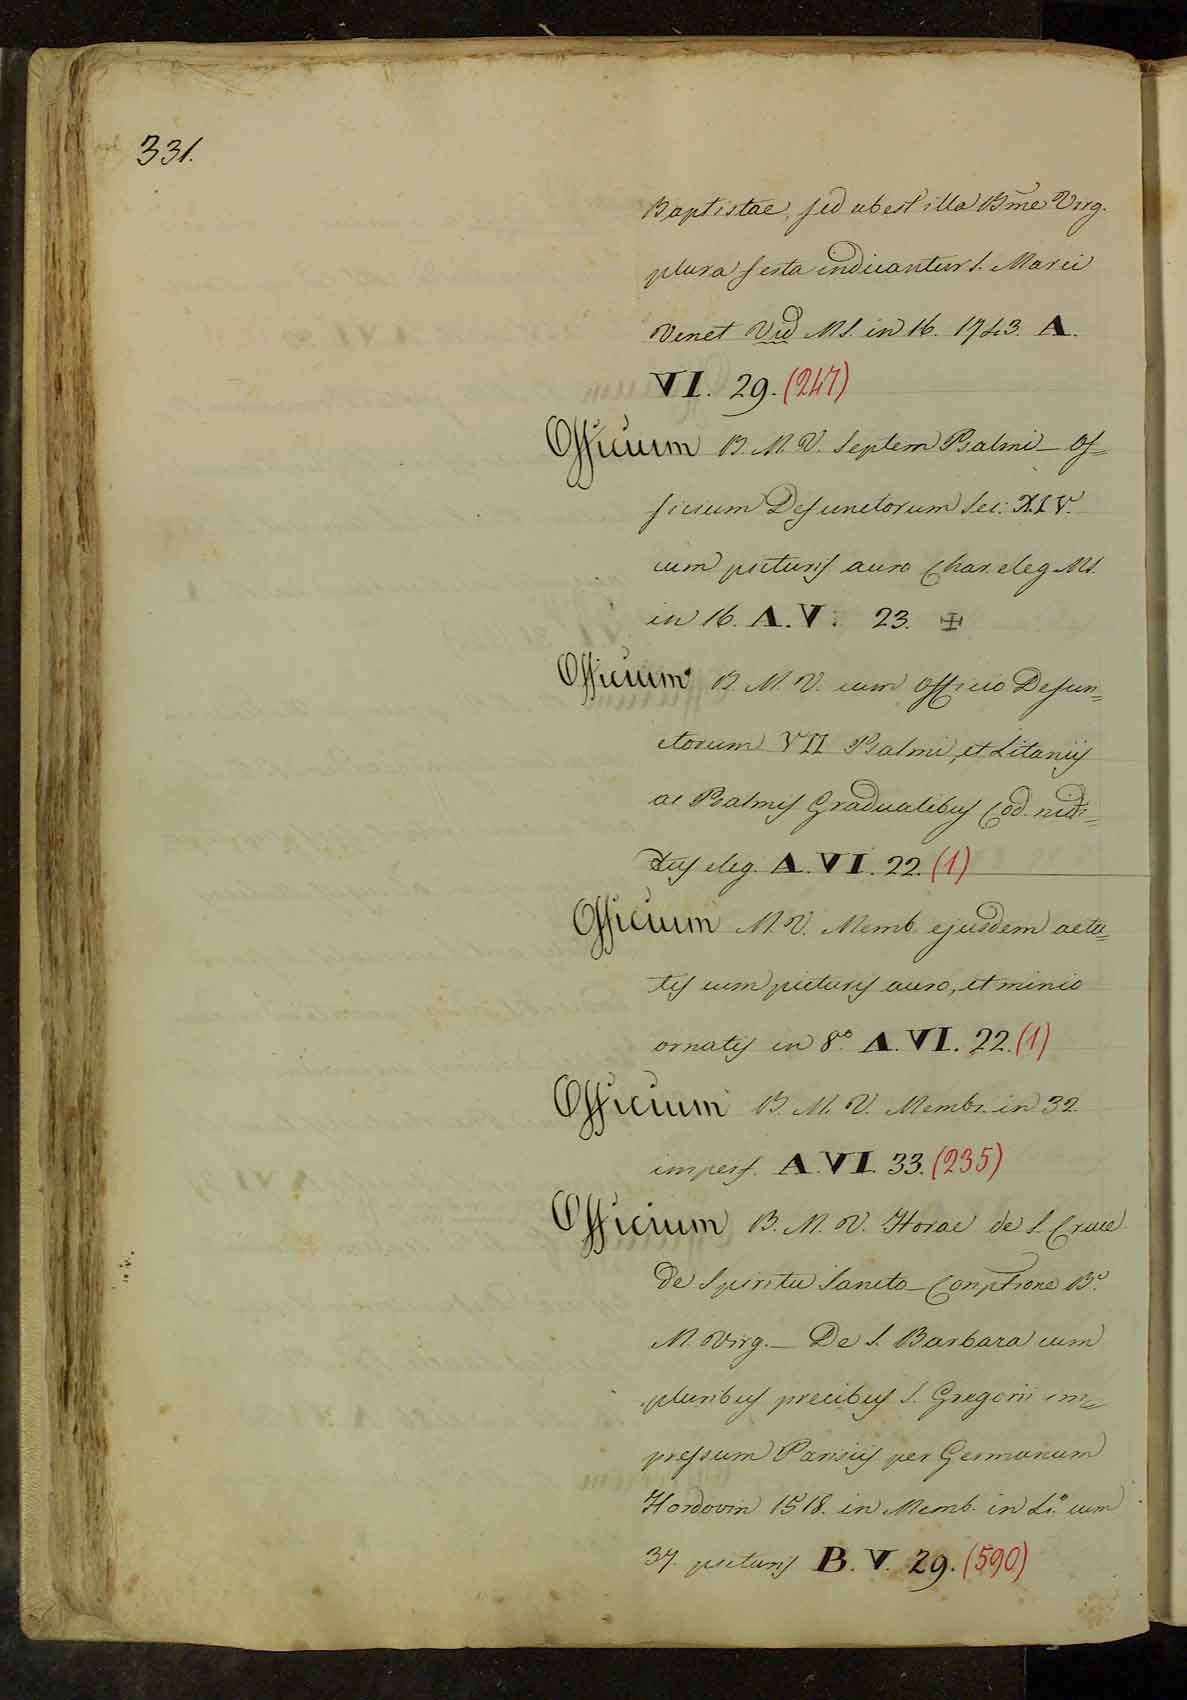 331.
Baptistae, sed abest illa Bmē Virg.
plura festa indicantur S. Marci
Venet Vid MS. in 16. 1743. A.
VI. 29. (247)
Officium B. M. V. Septem Psalmi — Of=
ficium Defunctorum Sec. XIV.
cum picturis auro Char. eleg Ms.
in 16. A. V. 23. ✠
Officium B. M. V. cum officio Defun=
ctorum VII Psalmi, et Litaniis
ac Psalmis Gradualibus Cod. nidi=
tus eleg. A. VI. 22. (1)
Officium M. V. Memb. ejusdem aeta=
tis cum picturis auro, et minio
ornatis in 8.º A. VI. 22. (1)
Officium B. M. V. Membr. in 32.
imperf. A. VI. 33. (235)
Officium B. M. V. Horae de S. Cruce
de Spiritu Sancto — Conptione B.
M. Virg. — De S. Barbara cum
pluribus precibus S. Gregorii im=
pressum Parisiis per Germanum
Hordovin 1518. in Memb. in 4.º cum
37. picturis B. V. 29. (590)